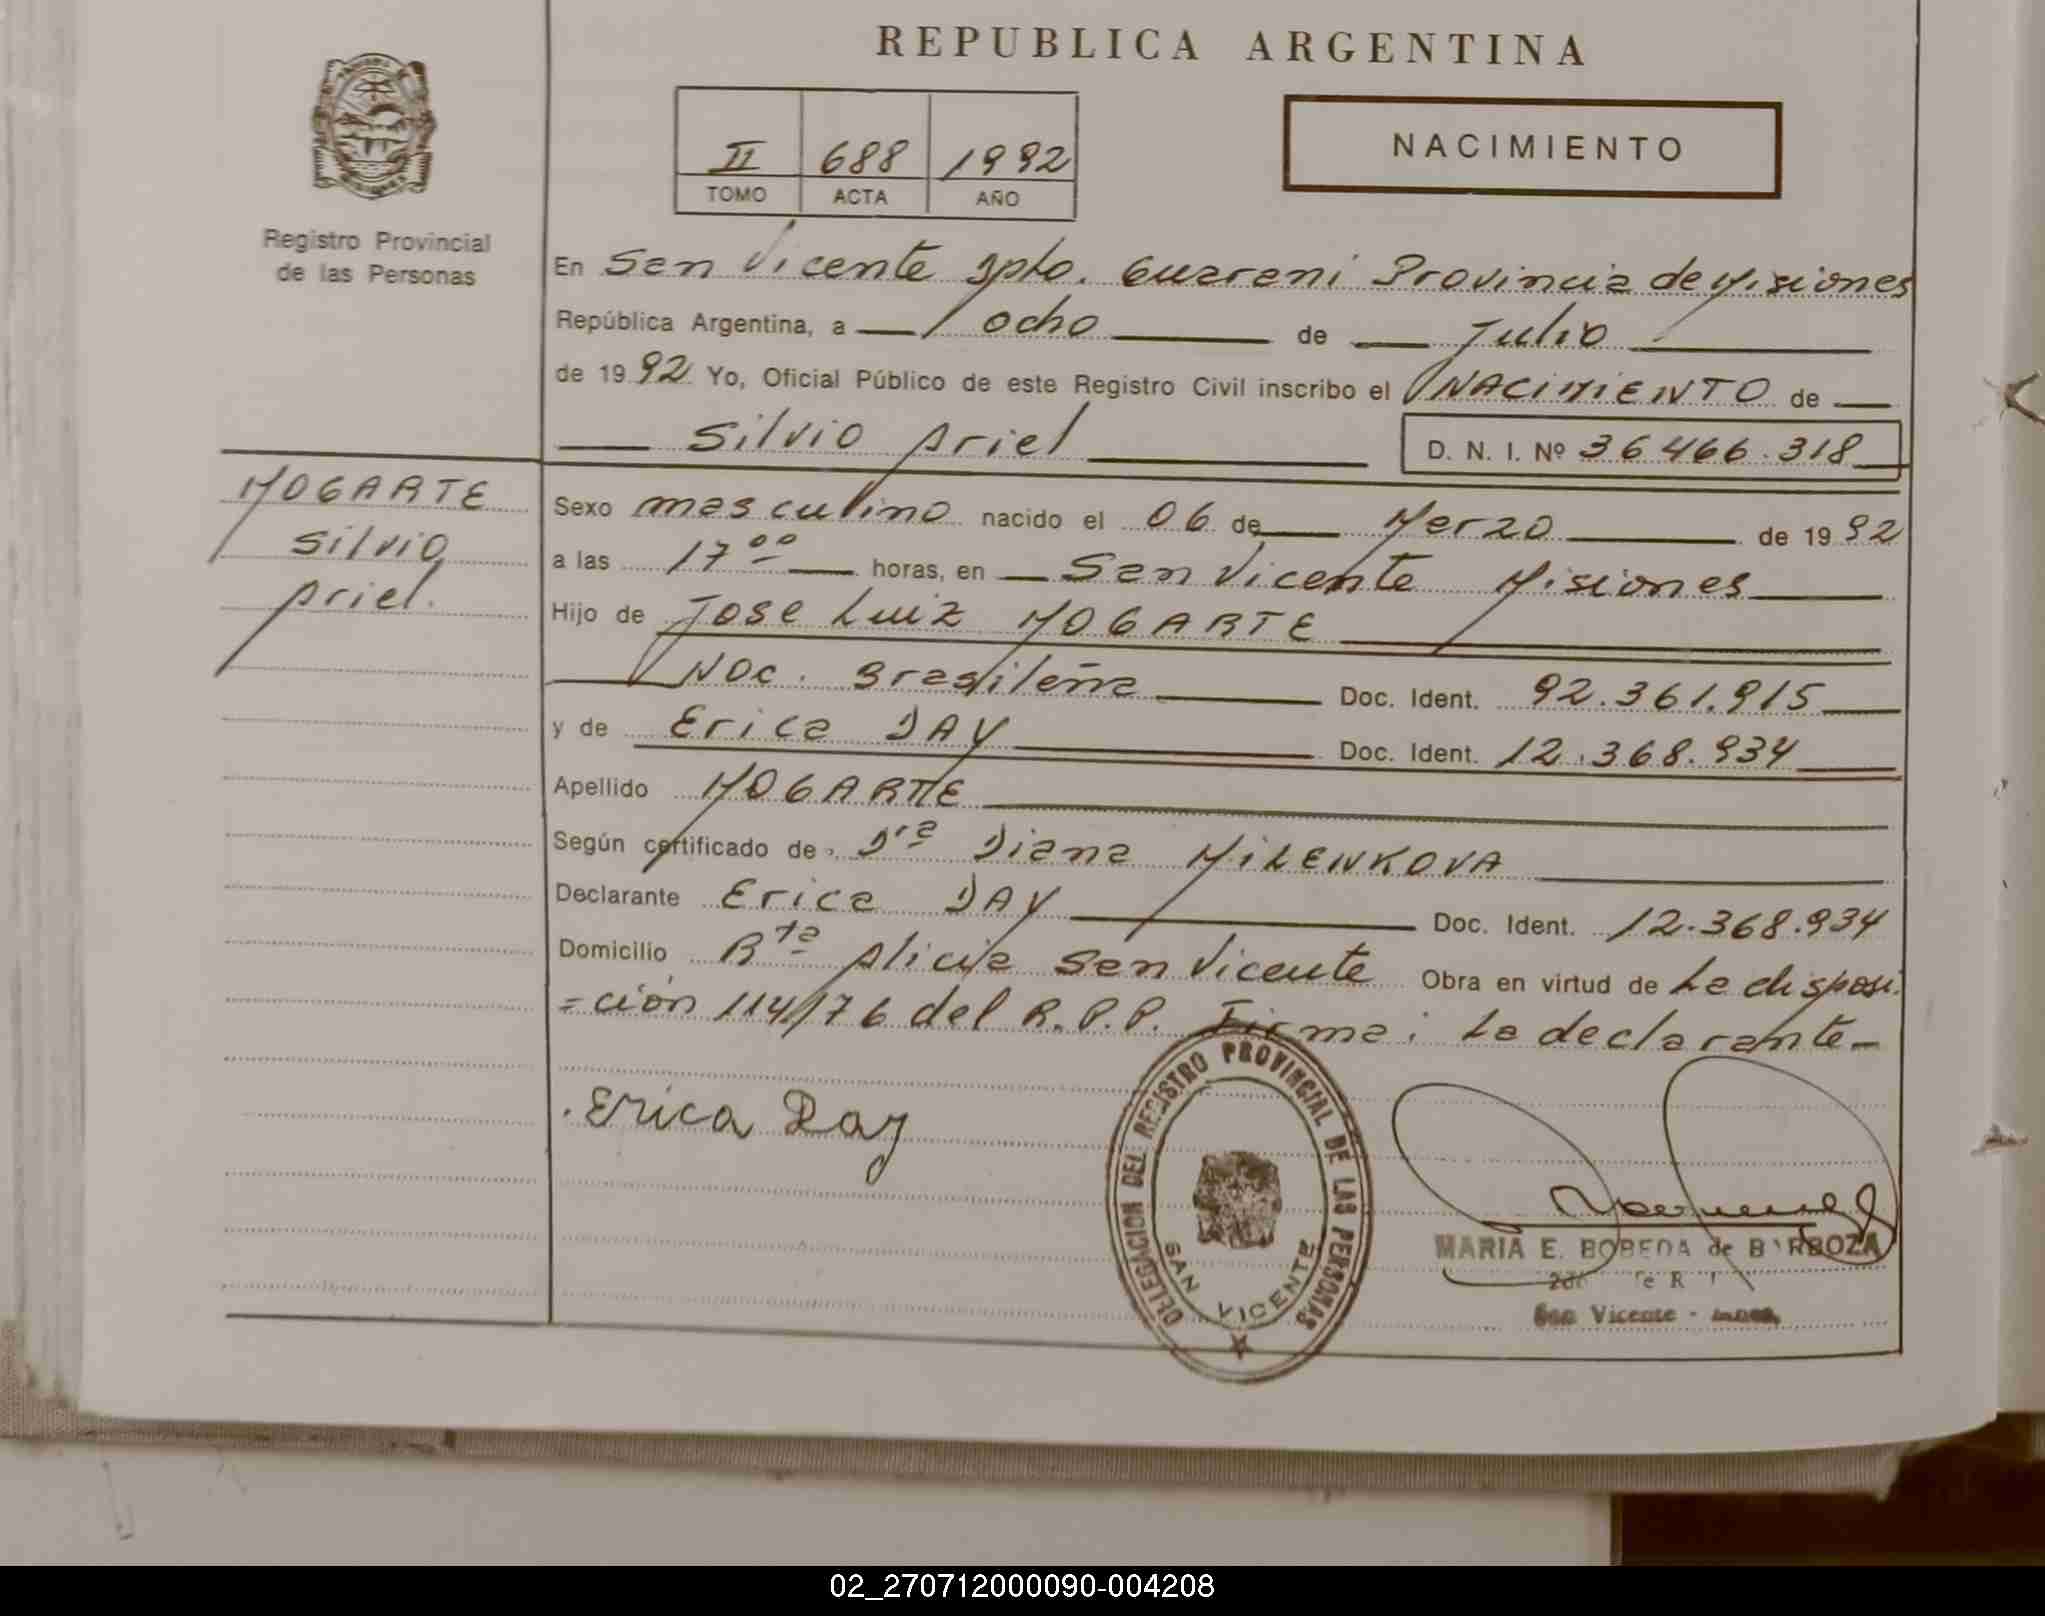 REPUBLICA ARGENTINA
II 688 1992
TOMO ACTA AÑO
NACIMIENTO
Registro Provincial
de las Personas
En San Vicente Dpto. Guarani Provincia de Misiones
República Argentina, a ocho de Julio
de 1992 Yo, Oficial Público de este Registro Civil inscribo el NACIMIENTO de
Silvio Ariel D. N. I. Nº 36466.318
MOGARTE
Silvio
Ariel.
Sexo masculino nacido el 06 de Marzo de 1992
a las 17ºº horas, en San Vicente Misiones
Hijo de Jose Luiz MOGARTE
Nac. Brasileña Doc. Ident. 92.361.915
y de Erica DAY Doc. Ident. 12.368.934
Apellido MOGARTE
Según certificado de Dra Diana MILENKOVA
Declarante Erica DAY Doc. Ident. 12.368.934
Domicilio Pta Alicia San Vicente Obra en virtud de La disposi
=ción 114/76 del R.P.P. Firma: La declarante-
Erica Day
DELEGACION DEL REGISTRO PROVINCIAL DE LAS PERSONAS
SAN VICENTE
MARIA E. BOBEDA de BARBOZA
San Vicente -
02_270712000090-004208